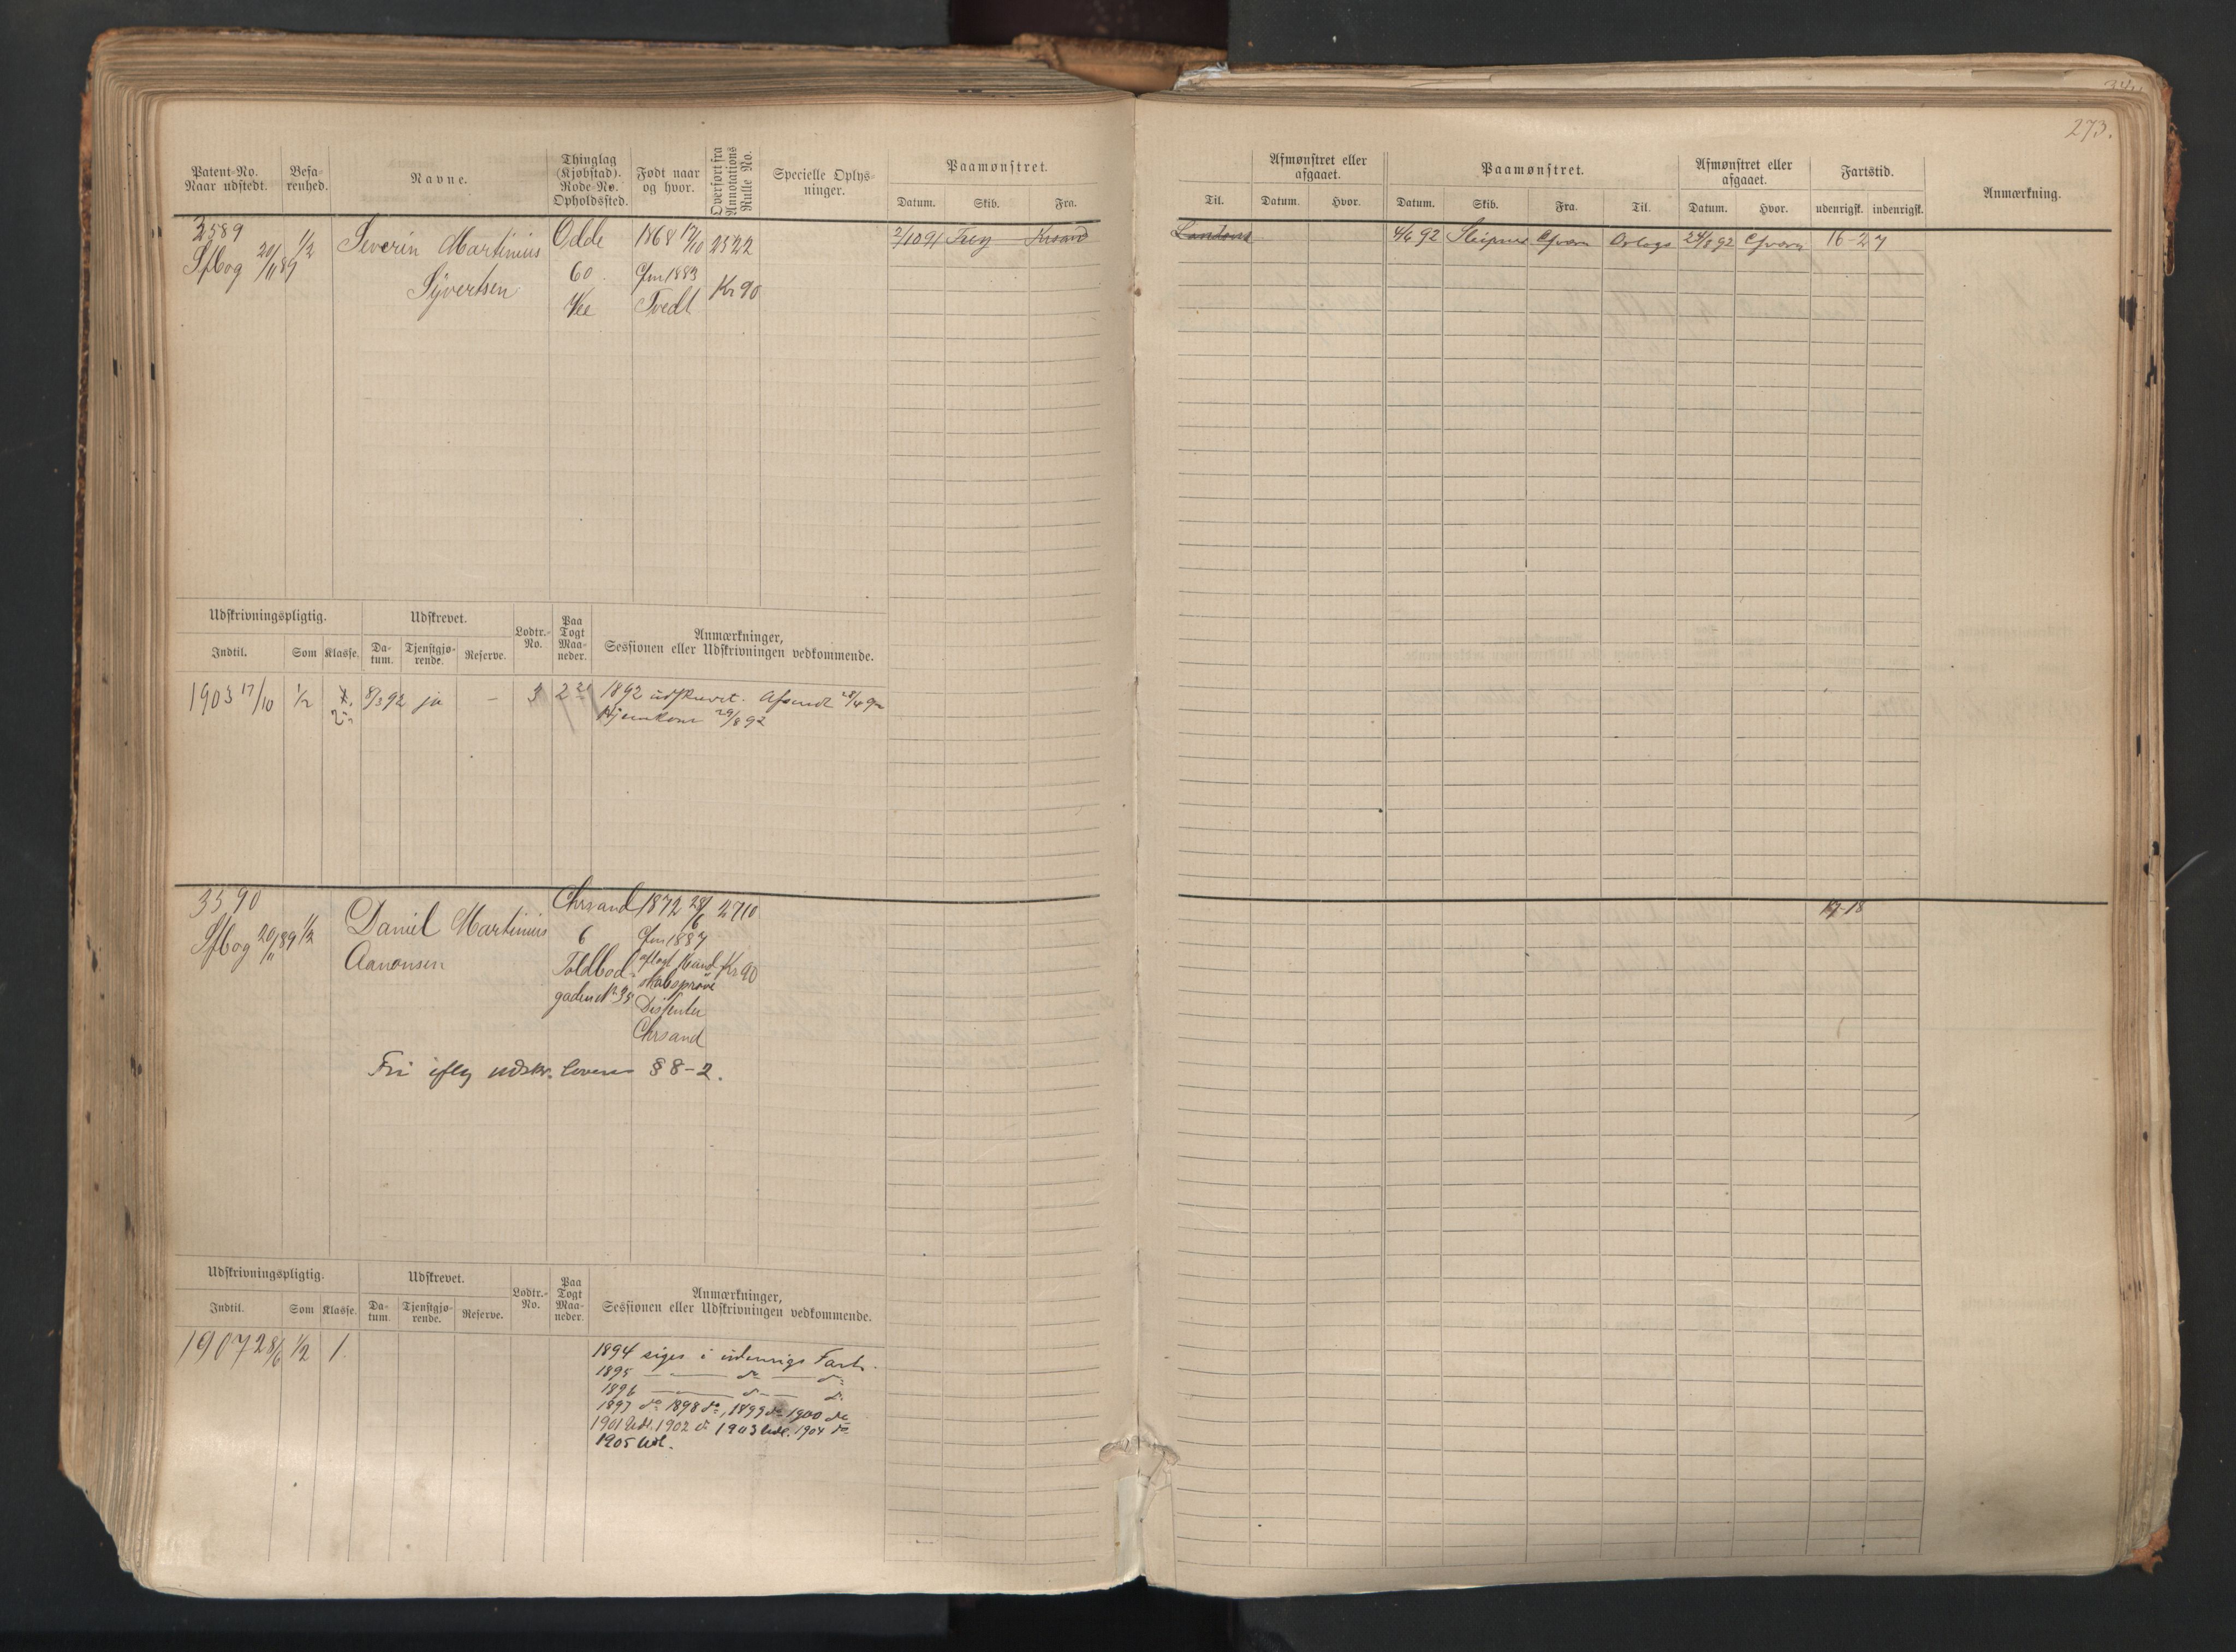 273.
Patent-No.
Naar udstedt.
Befa-
renhed.
Navne.
Thinglag
(Kjøbstad).
Rode-No.
Opholdssted.
Født naar
og hvor.
Overført fra
Annotations
Rulle No.
Specielle Oplys-
ninger.
Paamønstret.
Datum. Skib. Fra.
Til.
Afmønstret eller
afgaaet.
Datum. Hvor.
Paamønstret.
Datum. Skib. Fra. Til.
Afmønstret eller
afgaaet.
Datum. Hvor.
Fartstid.
udenrigsk. indenrigsk.
Anmærkning.
3589
Sfbog 20/11 89
1/2
Severin Martinius
Syvertsen
Odde
60
Vee
1868 17/10
Cfm 1883
Tvedt
2522
Kr 90
2/10 91 Frey Krsand
London
4/6 92 Sleipner Chvern Orlogs 24/8 92 Chvern 16-27
Udskrivningspligtig.
Indtil. Som Klasse.
Udskrevet.
Da-
tum.
Tjenstgjø-
rende.
Reserve.
Lodtr.-
No.
Paa
Togt
Maa-
neder.
Anmærkninger,
Sessionen eller Udskrivningen vedkommende.
1903 17/10 1/2 8/3 92 ja - 3 2 21
1892 udskrevet. Afsendt 28/4 92
Hjemkom 29/8 92
3590
Sfbog 20/11 89 1/2
Daniel Martinius
Aanonsen
Chrsand
6
Toldbod-
gaden No 35
1872 28/6
Cfm 1887
aflagt Kund-
skabsprøve
Dissenter
Chrsand
2710
Kr 90
17-18
Fri iflg udskr. loven § 8-2.
Udskrivningspligtig.
Indtil. Som Klasse.
Udskrevet.
Da-
tum.
Tjenstgjø-
rende.
Reserve.
Lodtr.-
No.
Paa
Togt
Maa-
neder.
Anmærkninger,
Sessionen eller Udskrivningen vedkommende.
1907 28/6 1/2 1.
1894 siges i udenrigs Fart.
1895 — — do — do
1896 — — do — do
1897 do 1898 do, 1899 do 1900 do
1901 Udl. 1902 do 1903 Udl. 1904 do
1905 Udl.